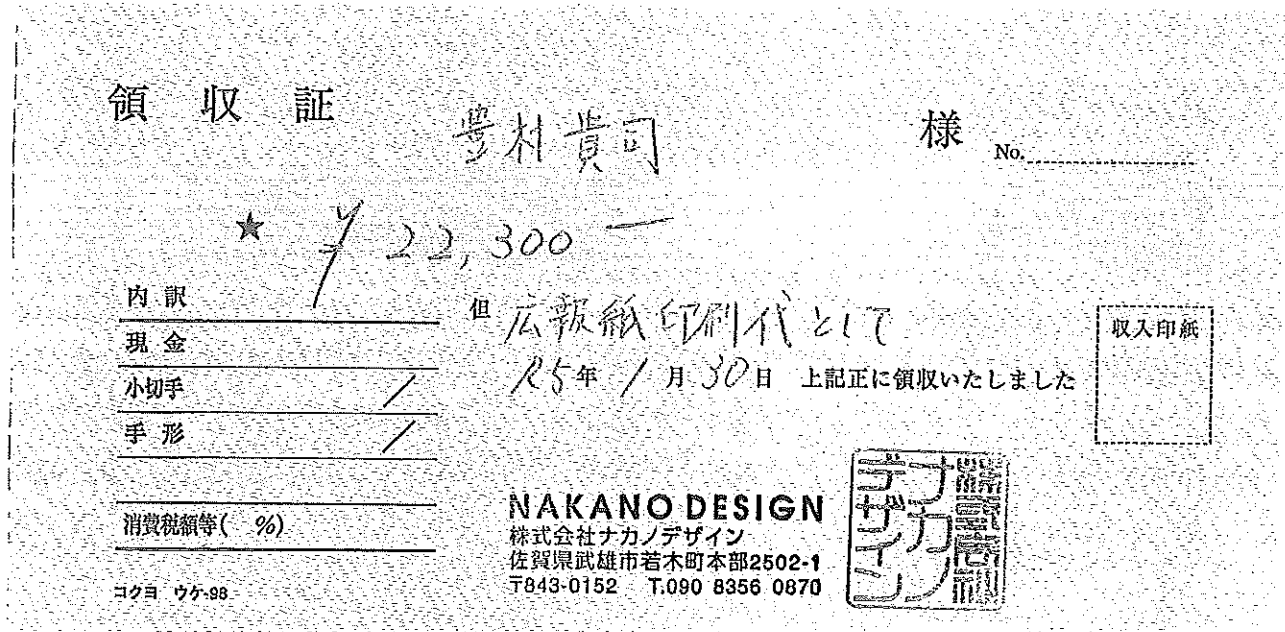 領収証
豊村貴司 様
No.
★ ¥22,300-
内訳
現金
小切手 /
手形 /
消費税額等( %)
コクヨ ウケ-98
但 広報紙印刷代として
R5年 1月30日 上記正に領収いたしました
収入印紙
NAKANO DESIGN
株式会社ナカノデザイン
佐賀県武雄市若木町本部2502-1
〒843-0152 T.090 8356 0870
株式会社
ナカノ
デザイン